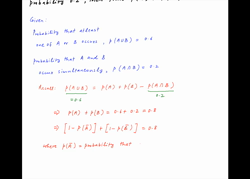 probability 0.2,
Given:
Probability that atleast
one of A or B occurs, P(A∪B) = 0.6
probability that A and B
occur simultaneously, P(A∩B) = 0.2
P(A∪B) = P(A) + P(B) - P(A∩B)
0.6 0.2
⇒ P(A) + P(B) = 0.6 + 0.2 = 0.8
⇒ [1-P(A̅)] + [1-P(B̅)] = 0.8
where P(A̅) = probability that